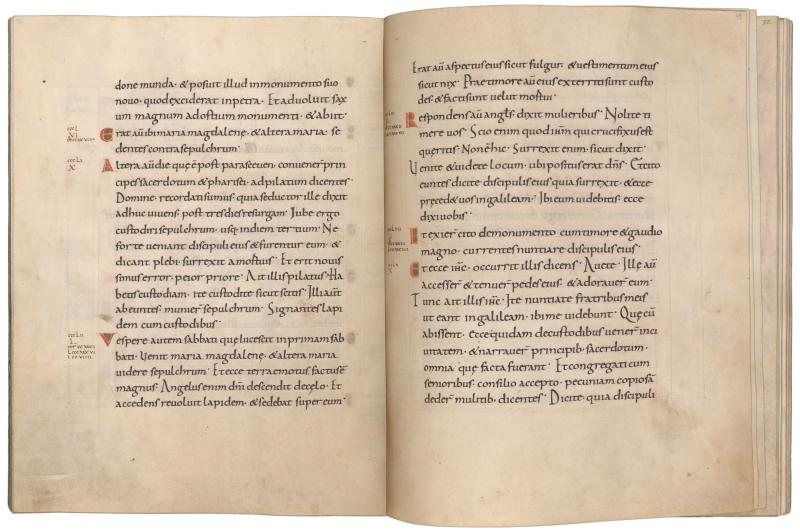 done munda · & posuit illud in monumento suo
nouo · quod exciderat in petra · Et aduoluit sax
um magnum ad ostium monumenti · & abiit ·
Erat aū ibi maria magdalene · & altera maria · se
dentes contra sepulchrum ·
Altera aū die que ē post parasceuen · conuener̄ prin
cipes sacerdotum & pharisei · ad pilatum dicentes ·
Domine · recordati sumus · quia seductor ille dixit
adhuc uiuens · post tres dies resurgam · Iube ergo
custodiri sepulchrum · usq; in diem tertium · Ne
forte ueniant discipuli eius & furentur eum · &
dicant plebi · surrexit a mortuis · Et erit nouis
simus error · peior priore · Ait illis pilatus · Ha
betis custodiam · ite custodite sicut scitis · Illi aūt
abeuntes · munier̄ sepulchrum · Signantes lapi
dem cum custodibus ·
Vespere autem sabbati que lucescit in primam sab
bati · Uenit maria magdalene · & altera maria
uidere sepulchrum · Et ecce terrae motus factus ē
magnus · Angelus enim dn̄i descendit de celo · Et
accedens reuoluit lapidem · & sedebat super eum ·
Erat aū aspectus eius sicut fulgur · & uestimentum eius
sicut nix · Prae timore aū eius exterriti sunt custo
des · & facti sunt uelut mortui ·
Respondens aū angl̄s dixit mulieribus · Nolite ti
mere uos · Scio enim quod ih̄m qui crucifixus est
queritis · Non ē hic · Surrexit enim · sicut dixit ·
Uenite & uidete locum · ubi positus erat dn̄s · & cito
euntes dicite discipulis eius quia surrexit · & ecce
preced& uos in galileam · Ibi eum uidebitis · ecce
dixi uobis ·
Et exier̄ cito de monumento cum timore & gaudio
magno · currentes nuntiare discipulis eius ·
Et ecce ih̄c · occurrit illis dicens · Auete · Ille aū
accesser̄ & tenuer̄ pedes eius · & adorauer̄ eum ·
Tunc ait illis ih̄c · Ite nuntiate fratribus meis
ut eant in galileam · ibi me uidebunt · Que cū
abissent · Ecce quidam de custodibus uener̄ in ci
uitatem · & narrauer̄ principib; sacerdotum ·
omnia que facta fuerant · Et congregati cum
senioribus · consilio accepto · pecuniam copiosā
deder̄ militib; dicentes · Dicite · quia discipuli